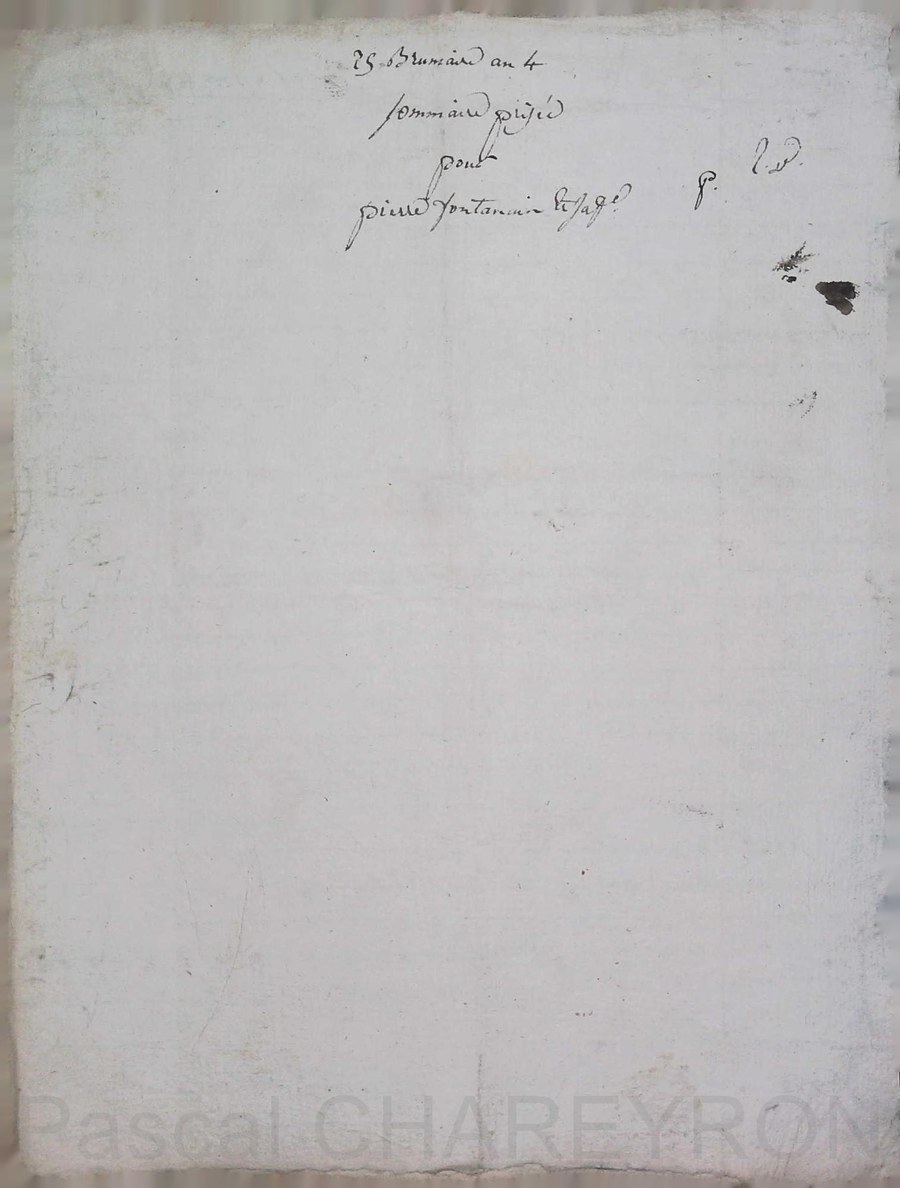 25 Brumaire an 4
sommaire prisée
pour
pierre fontanain et sa fe
p.
Pascal CHAREYRON